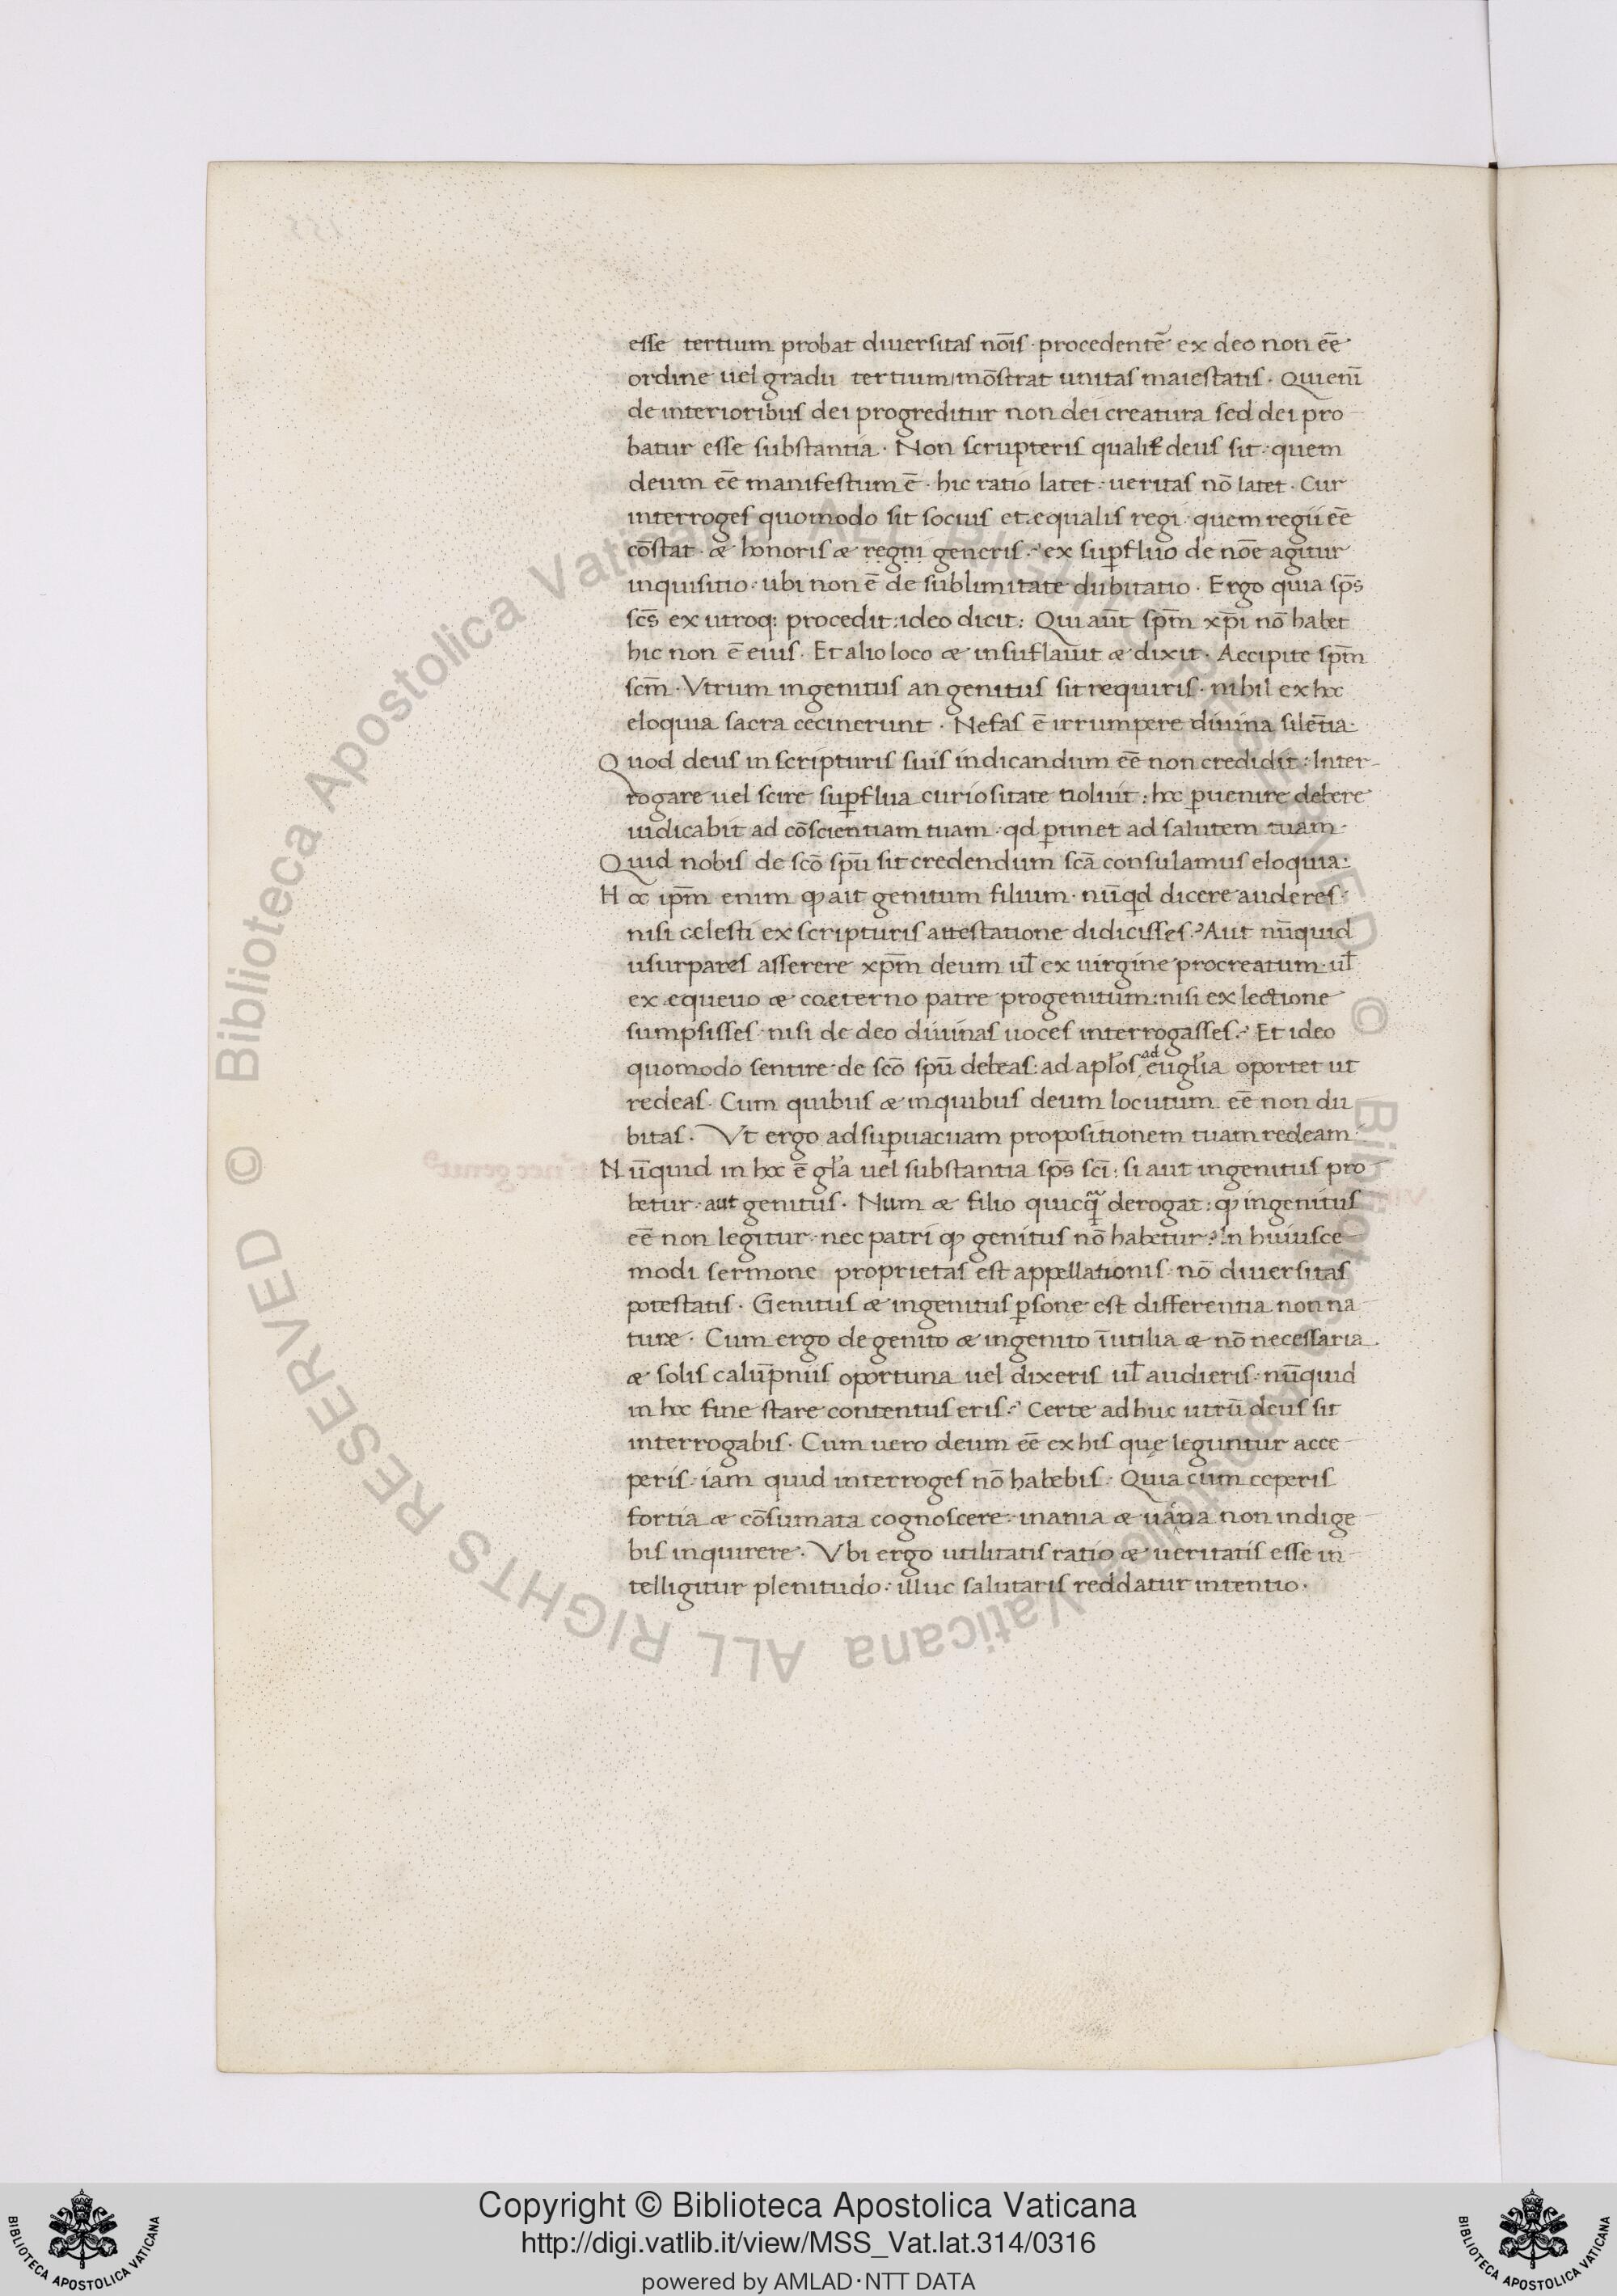 esse tertium probat diuersitas nōis · procedentē ex deo non eē
ordine uel gradu tertium mōstrat unitas maiestatis · Qui eni̅
de interioribus dei progreditur non dei creatura sed dei pro
batur esse substantia · Non scrupteris qualit̅ deus sit · quem
deum eē manifestum ē · hic ratio latet · ueritas nō latet · Cur
interroges quomodo sit socius et æqualis regi · quem regii eē
cōstat · æ honoris æ regni generis · ex sup̱fluo de nōe agitur
inquisitio · ubi non ē de sublimitate dubitatio · Ergo quia sp̄s
sc̄s ex utroq; procedit : ideo dicit : Qui aūt sp̄m xp̄i nō habet
hic non ē eius · Et alio loco æ insuflauit æ dixit · Accipite sp̄m
sc̄m · Vtrum ingenitus an genitus sit requiris · nihil ex hoc
eloquia sacra cecinerunt · Nefas ē irrumpere diuina silētia ·
Quod deus in scripturis suis indicandum eē non credidit : Inter-
rogare uel scire sup̱flua curiositate noluit : hoc p̱uenire debere
iudicabit ad cōscientiam tuam · qd p̱tinet ad salutem tuam ·
Quid nobis de scō spū sit credendum scā consulamus eloquia :
Hoc ip̄m enim ꝙ ait genitum filium · nūqd dicere auderes ·
nisi celesti ex scripturis attestatione didicisses ? Aut nūquid
usurpares asserere xp̄m deum ul̄ ex uirgine procreatum · ul̄
ex æqueuo æ coeterno patre progenitum : nisi ex lectione
sumpsisses · nisi de deo diuinas uoces interrogasses ? Et ideo
quomodo sentire de scō spū debeas : ad apl̄os ad eugl̄ia oportet ut
redeas · Cum quibus æ in quibus deum locutum eē non du
bitas · Vt ergo ad sup̱uacuam propositionem tuam redeam ·
Nūquid in hoc ē gl̄a uel substantia sp̄s sc̄i : si aut ingenitus pro
betur · aut genitus · Num æ filio quicq̄ derogat : ꝙ ingenitus
eē non legitur · nec patri ꝙ genitus nō habetur ? In huiusce
modi sermone proprietas est appellationis · nō diuersitas
potestatis · Genitus æ ingenitus p̱sone est differentia non na
ture · Cum ergo de genito æ ingenito īutilia æ nō necessaria
æ solis calūpniis oportuna uel dixeris ul̄ audieris · nūquid
in hoc fine stare contentus eris ? Certe ad huc utrū deus sit
interrogabis · Cum uero deum eē ex his quę leguntur acce
peris · iam quid interroges nō habebis · Quia cum ceperis
fortia æ cōsumata cognoscere · inania æ uana non indige
bis inquirere · Vbi ergo utilitatis ratio æ ueritatis esse in
telligitur plenitudo : illuc salutaris reddatur intentio ·
© Biblioteca Apostolica Vaticana ALL RIGHTS RESERVED © Biblioteca Apostolica Vaticana ALL RIGHTS RESERVED
Copyright © Biblioteca Apostolica Vaticana
http://digi.vatlib.it/view/MSS_Vat.lat.314/0316
powered by AMLAD·NTT DATA
BIBLIOTECA APOSTOLICA VATICANA
BIBLIOTECA APOSTOLICA VATICANA